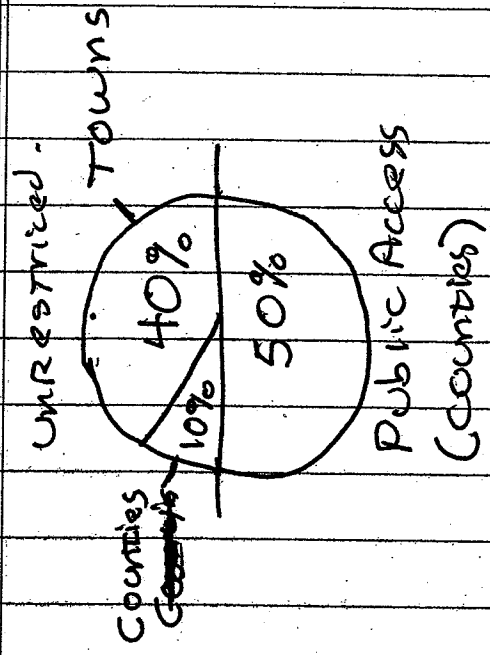 UNRESTRICED.
TOWNS
40%
Counties
10%
50%
Public Access
(Counties)